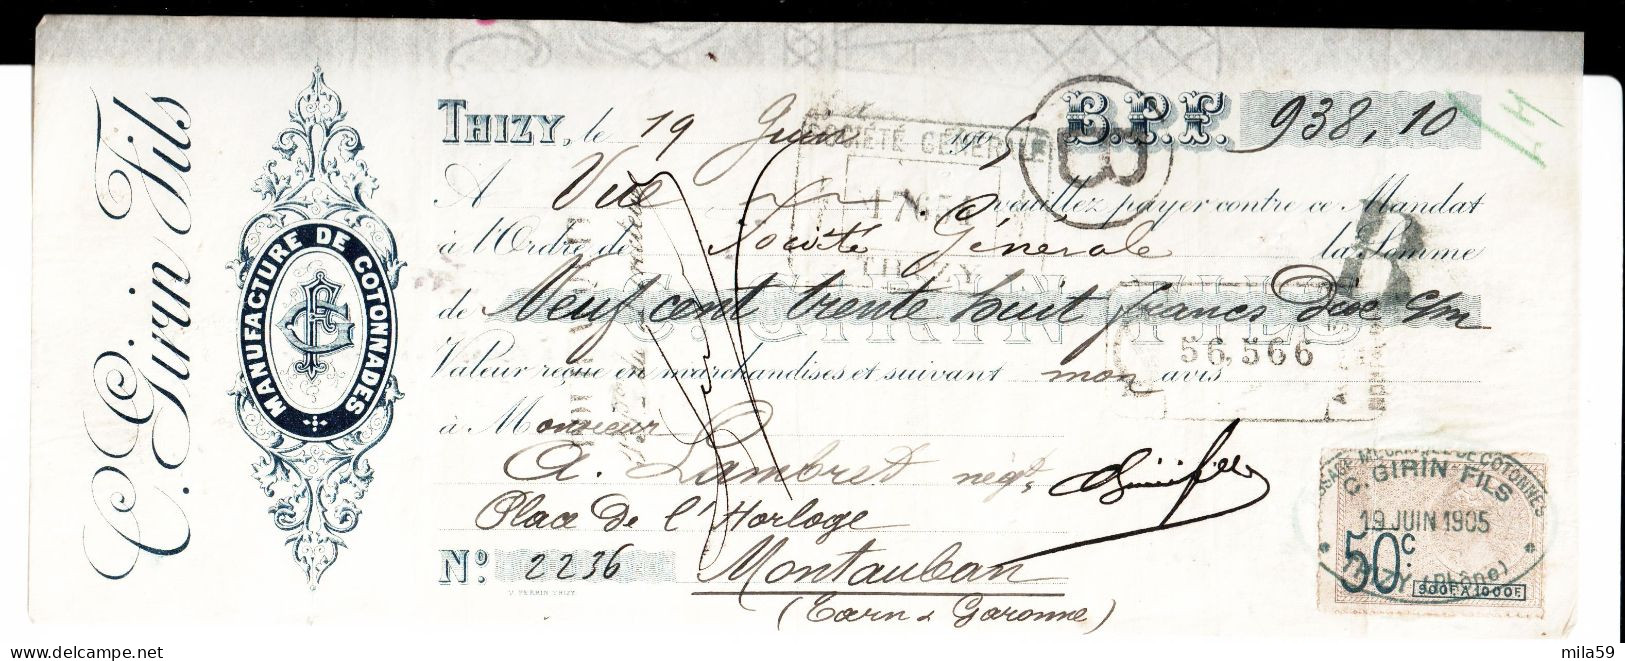 C. Girin Fils
MANUFACTURE DE COTONNADES
THIZY, le 19 Juin 1905 B.P.F. 938,10
A Vue veuillez payer contre ce Mandat
à l'Ordre de Société Générale la Somme
de Neuf cent trente huit francs Dix c/m
Valeur reçue en marchandises et suivant mon avis
à Monsieur
A. Lambret négt
Place De l'Horloge
No. 2236 Montauban
(Tarn & Garonne)
V. PERRIN THIZY.
SOCIÉTÉ GÉNÉRALE
THIZY
B
B
56,566
C. GIRIN FILS
19 JUIN 1905
THIZY (Rhône)
50c
900F A 1000F
C. GIRIN FILS
mila59